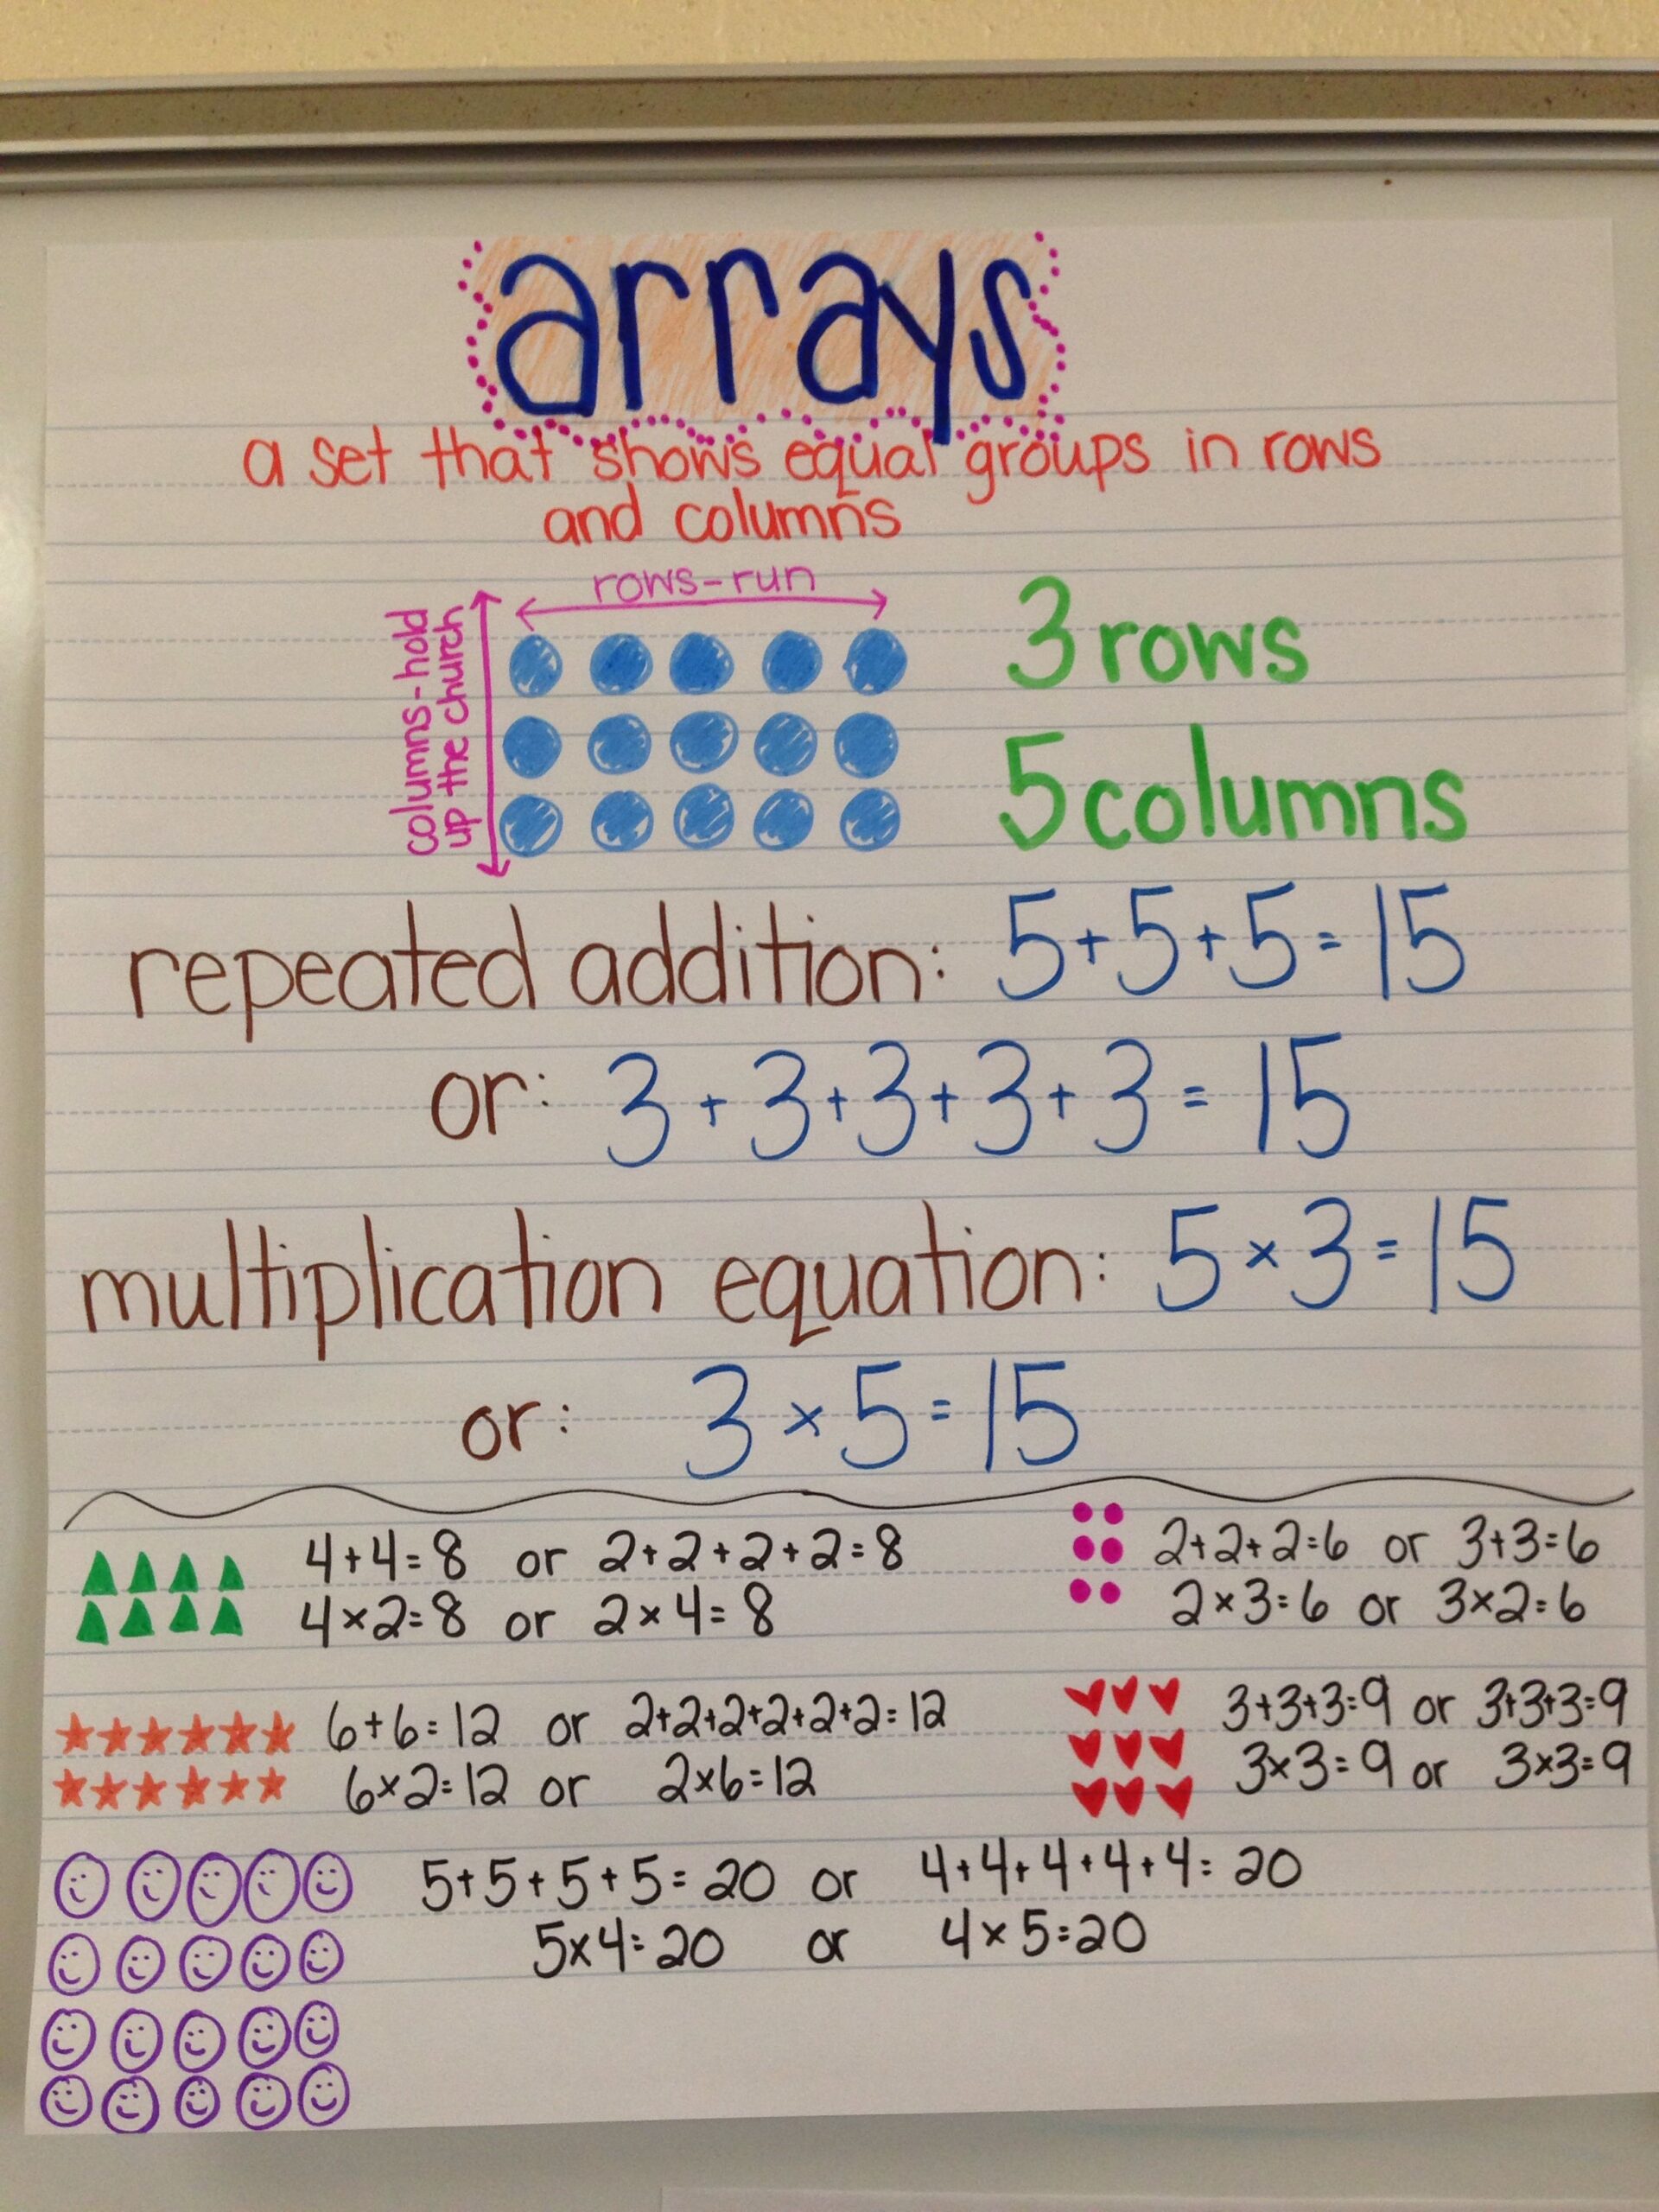 arrays
a set that shows equal groups in rows
and columns
rows-run
columns-hold
up the church
3 rows
5 columns
repeated addition: 5+5+5=15
or: 3+3+3+3+3=15
multiplication equation: 5×3=15
or: 3×5=15
4+4=8 or 2+2+2+2=8
4×2=8 or 2×4=8
2+2+2=6 or 3+3=6
2×3=6 or 3×2=6
6+6=12 or 2+2+2+2+2+2=12
6×2=12 or 2×6=12
3+3+3=9 or 3+3+3=9
3×3=9 or 3×3=9
5+5+5+5=20 or 4+4+4+4+4=20
5×4=20 or 4×5=20